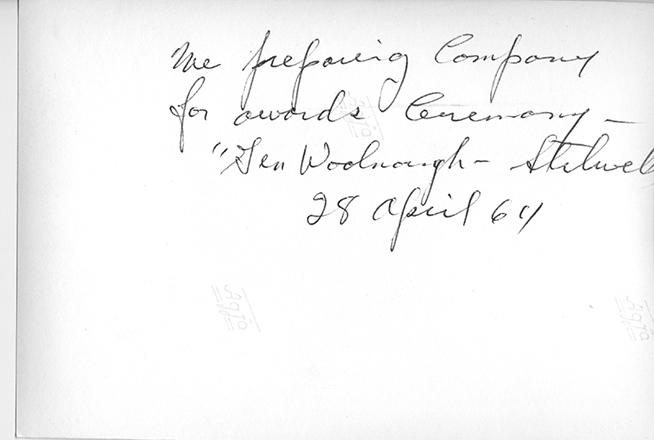 Me preparing Company
for awards Ceremony —
"Gen Woolnough — Stilwell
28 April 64